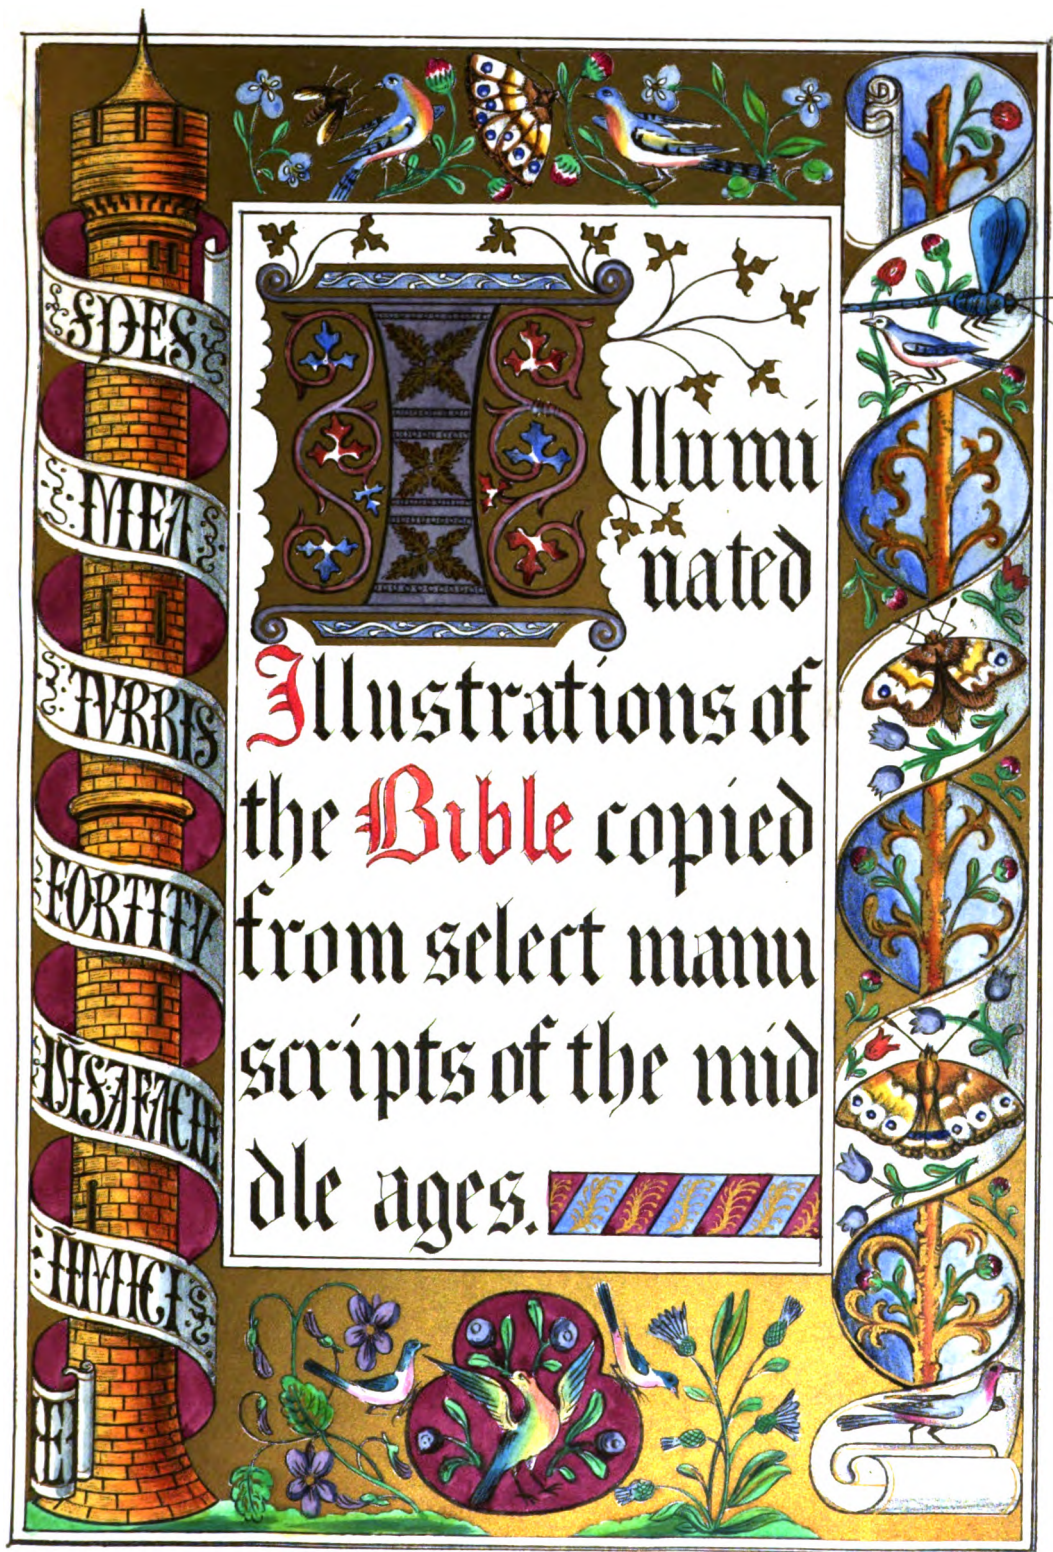 SPES
MEA
TVRRIS
FORTITV
DIS.AFACIE
INIMICI
Illumi
nated
Illustrations of
the Bible copied
from select manu
scripts of the mid
dle ages.